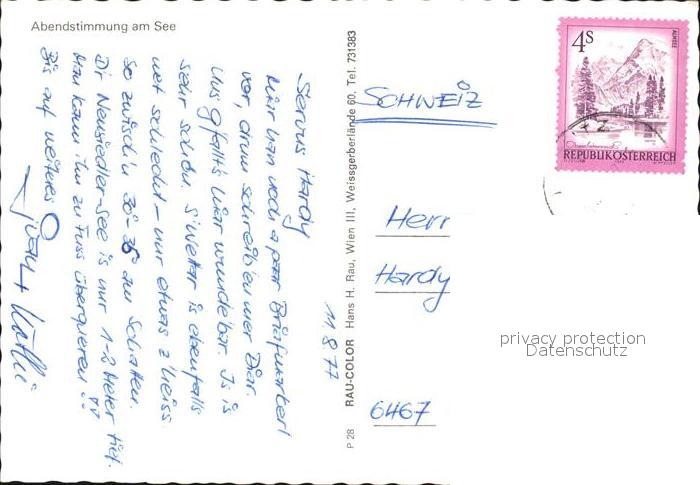 Abendstimmung am See
11 8 77
Servus Hardy
Mier han noch a paar Briefmarkerl
vor, drum schreiben mer Diar.
Uns gfallt's hiar wundebar. Is is
sehr schön. S'Wetter is ebenfalls
net schlecht - nur etwas z'heiss
so zwisch'n 30°-35° am Schatten.
Dr Neusiedler-See is nur 1-2 Meter tief.
Man kann ihn zu Fuss überqueren!!
Bis auf weiteres
P 28 RAU-COLOR Hans H. Rau, Wien III, Weissgerberlände 60, Tel. 731383
4S
ALMSEE
REPUBLIK ÖSTERREICH
SCHWEIZ
Herr
Hardy
6467
privacy protection
Datenschutz